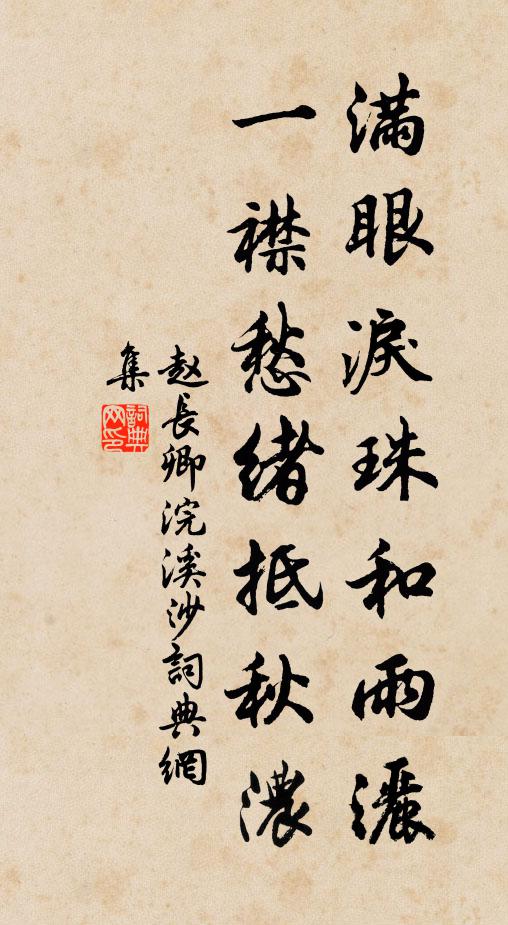 滿眼淚珠和雨灑
一襟愁緒抵秋濃
赵長卿浣溪沙詞典網
集
詞典网印